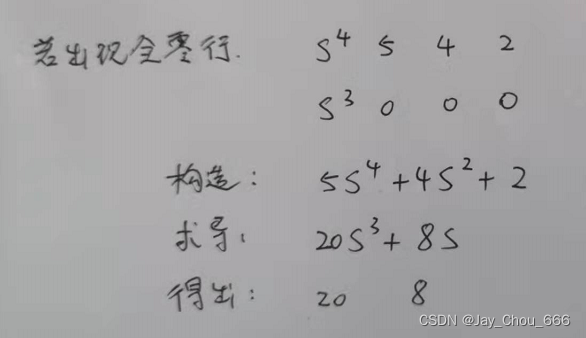 若出现全零行. S⁴ 5 4 2
S³ 0 0 0
构造: 5S⁴+4S²+2
求导: 20S³+8S
得出: 20 8
CSDN @Jay_Chou_666